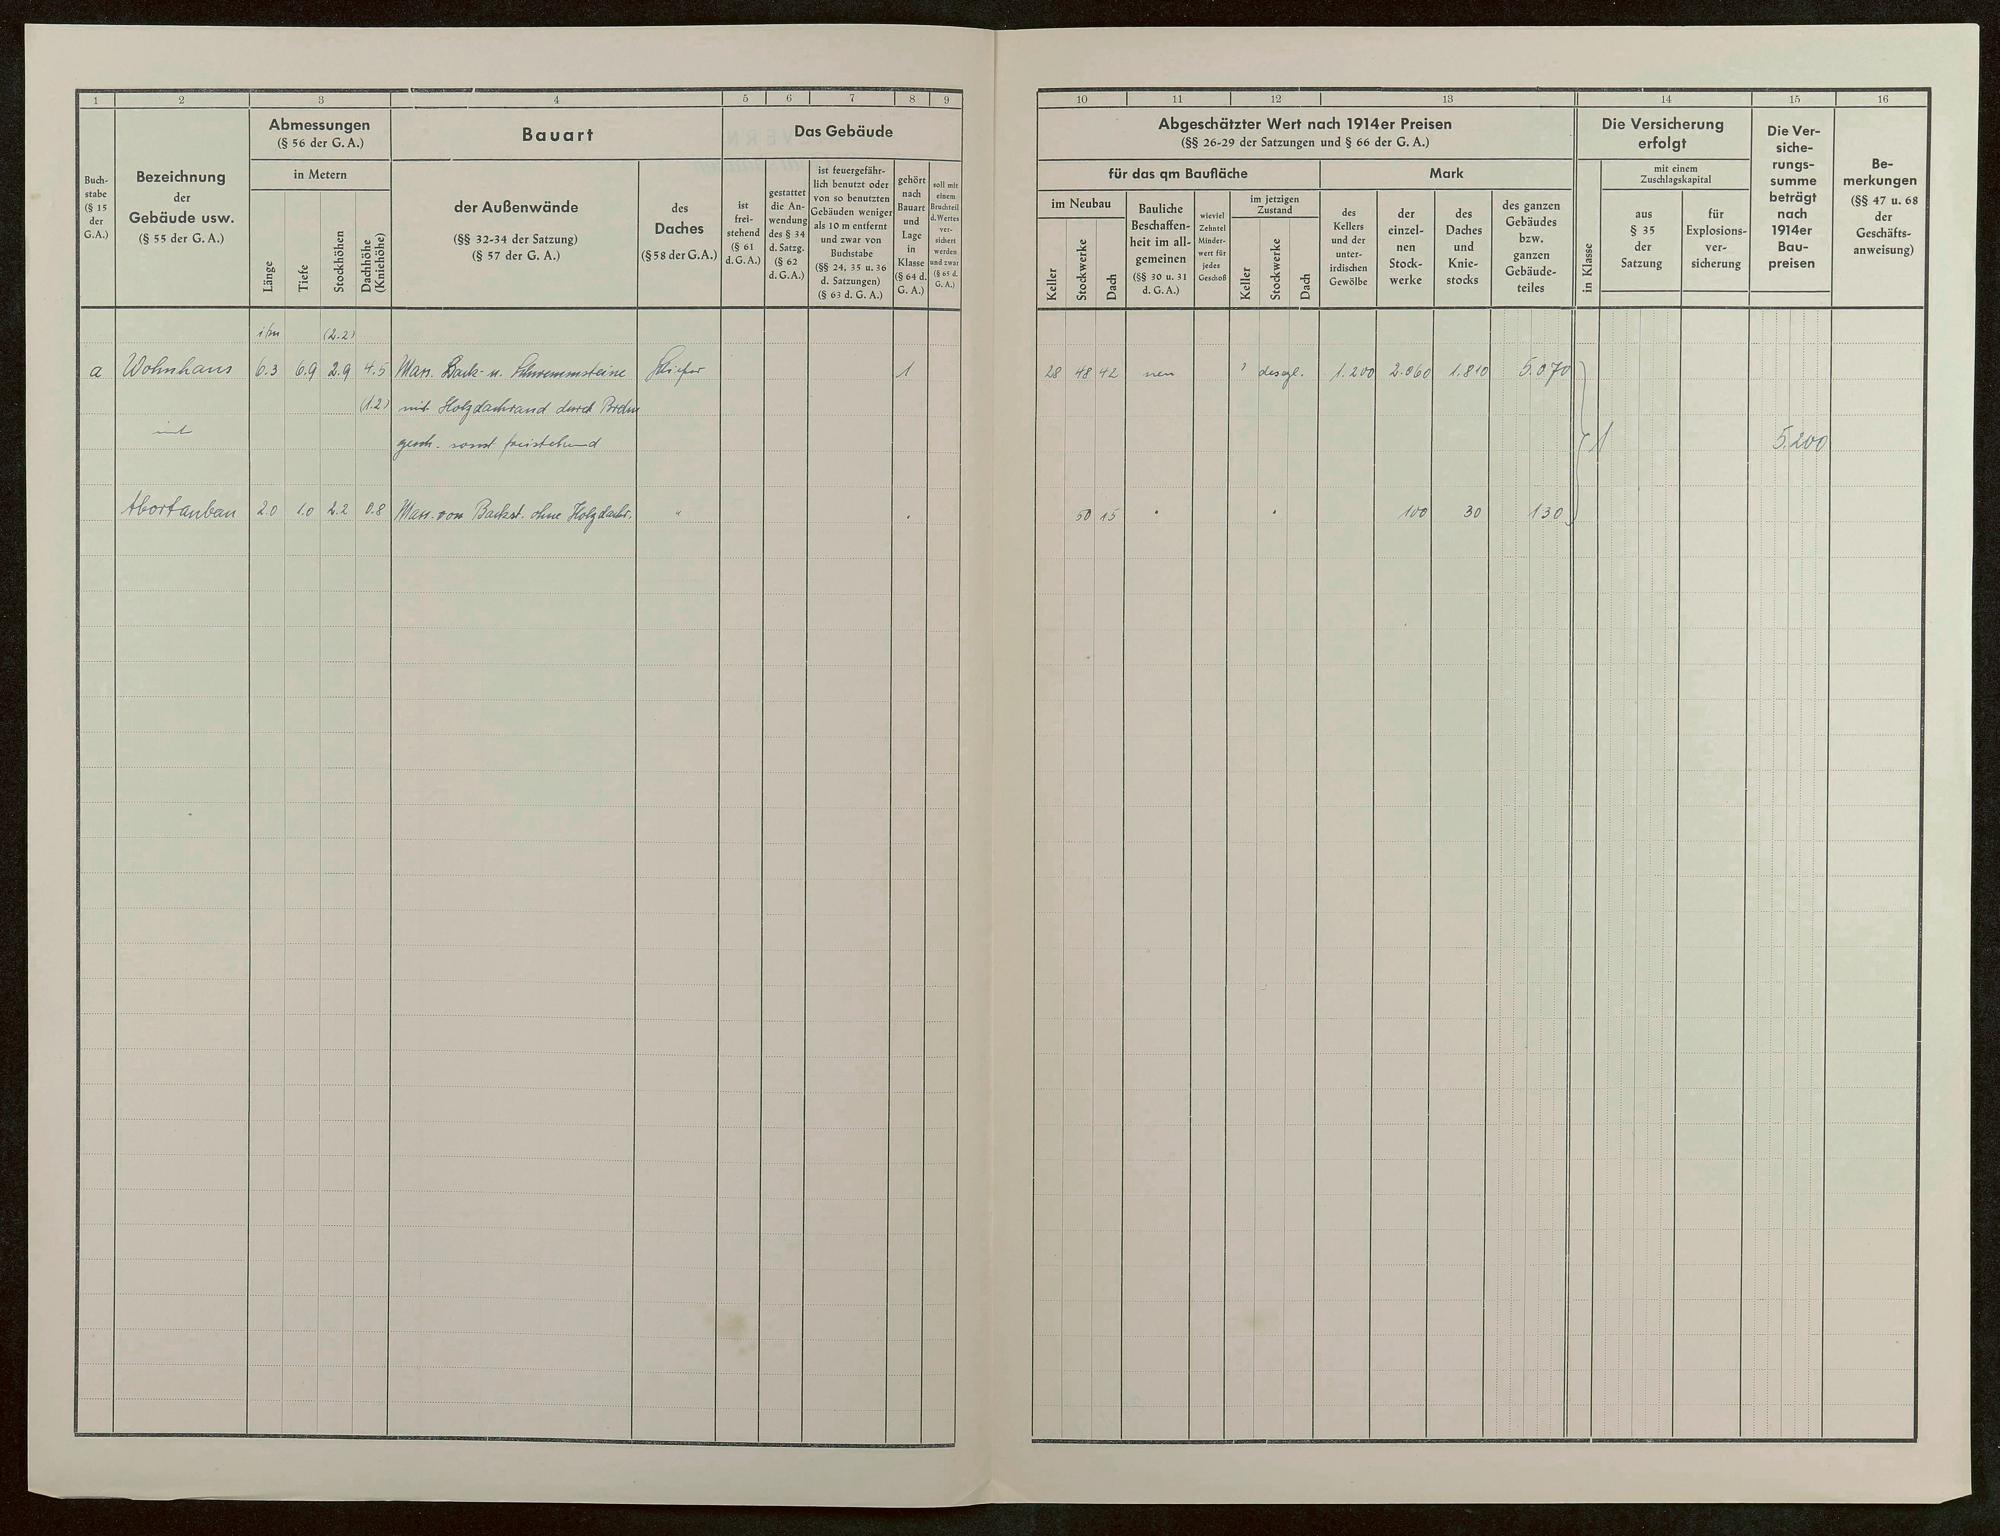 1 2 3 4 5 6 7 8 9
Buch-
stabe
(§ 15
der
G.A.)
Bezeichnung
der
Gebäude usw.
(§ 55 der G. A.)
Abmessungen
(§ 56 der G. A.)
in Metern
Länge
Tiefe
Stockhöhen
Dachhöhe
(Kniehöhe)
Bauart
der Außenwände
(§§ 32-34 der Satzung)
(§ 57 der G. A.)
des
Daches
(§ 58 der G.A.)
Das Gebäude
ist
frei-
stehend
(§ 61
d. G. A.)
gestattet
die An-
wendung
des § 34
d. Satzg.
(§ 62
d. G. A.)
ist feuergefähr-
lich benutzt oder
von so benutzten
Gebäuden weniger
als 10 m entfernt
und zwar von
Buchstabe
(§§ 24, 35 u. 36
d. Satzungen)
(§ 63 d. G. A.)
gehört
nach
Bauart
und
Lage
in
Klasse
(§ 64 d.
G. A.)
soll mit
einem
Bruchteil
d. Wertes
ver-
sichert
werden
und zwar
(§ 65 d.
G. A.)
(2.2)
a Wohnhaus 6.3 6.9 2.9 4.5 Mass. Back- u. Schwemmsteine Schiefer 1
(1.2) mit Holzdachrand durch
mit
gesch. sonst freistehend
Abortanbau 2.0 1.0 2.2 0.8 Mass. von Backst. ohne Holzdachr. "
10 11 12 13 14 15 16
Abgeschätzter Wert nach 1914er Preisen
(§§ 26-29 der Satzungen und § 66 der G. A.)
für das qm Baufläche
Mark
im Neubau
Keller
Stockwerke
Dach
Bauliche
Beschaffen-
heit im all-
gemeinen
(§§ 30 u. 31
d. G. A.)
wieviel
Zehntel
Minder-
wert für
jedes
Geschoß
im jetzigen
Zustand
Keller
Stockwerke
Dach
des
Kellers
und der
unter-
irdischen
Gewölbe
der
einzel-
nen
Stock-
werke
des
Daches
und
Knie-
stocks
des ganzen
Gebäudes
bzw.
ganzen
Gebäude-
teiles
Die Versicherung
erfolgt
in Klasse
mit einem
Zuschlagskapital
aus
§ 35
der
Satzung
für
Explosions-
ver-
sicherung
Die Ver-
siche-
rungs-
summe
beträgt
nach
1914er
Bau-
preisen
Be-
merkungen
(§§ 47 u. 68
der
Geschäfts-
anweisung)
28 48 42 neu desgl. 1.200 2.060 1.810 5.070
1 5.200
50 15 " " 100 30 130